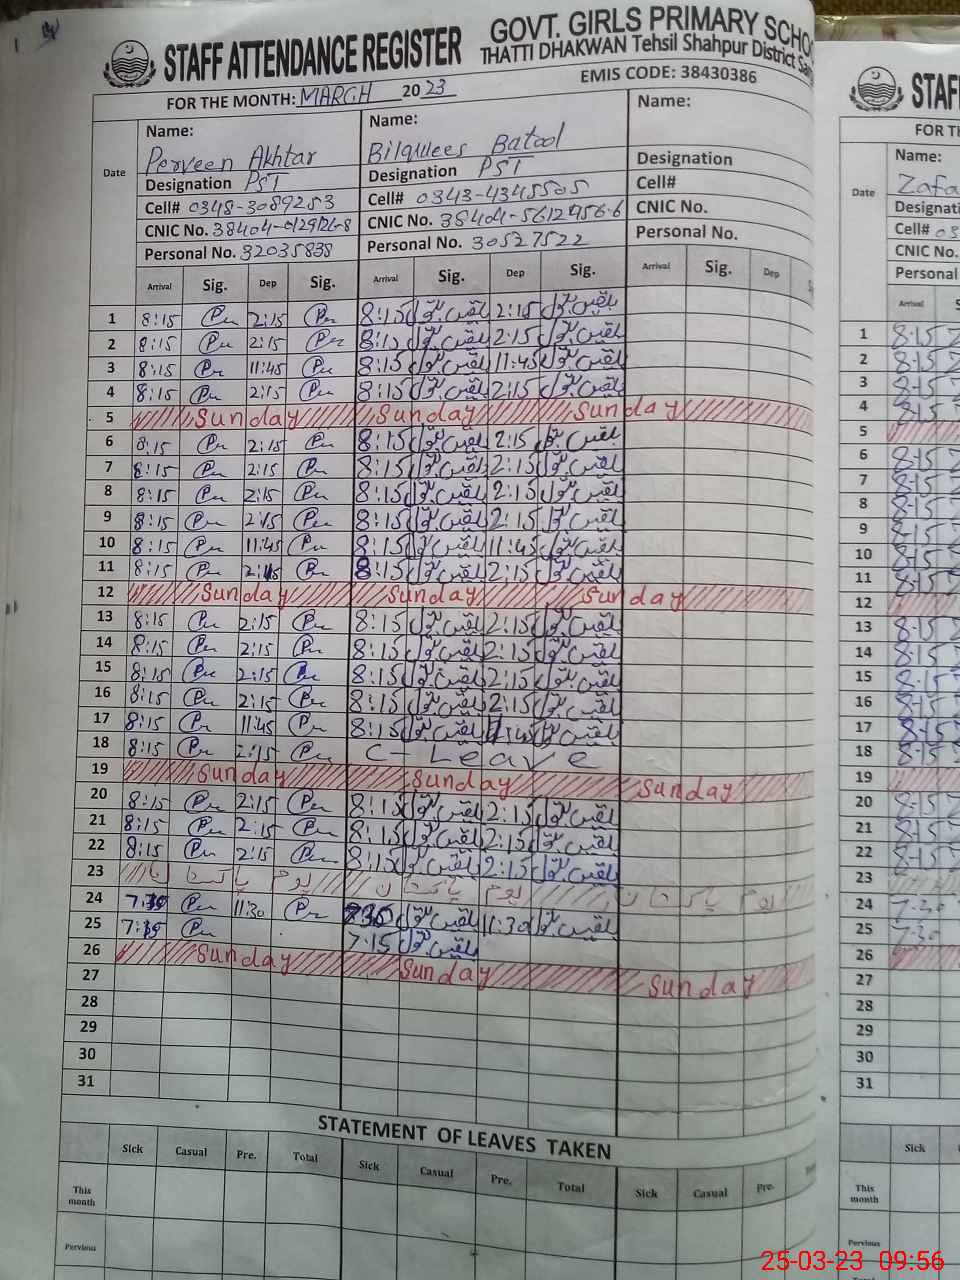 STAFF ATTENDANCE REGISTER
GOVT. GIRLS PRIMARY SCHO
THATTI DHAKWAN Tehsil Shahpur District Sa
EMIS CODE: 38430386
FOR THE MONTH: MARCH 2023
Date
Name: Perveen Akhtar
Designation PST
Cell# 0348-3089253
CNIC No.
Personal No. 32035838
Name: Bilquees Batool
Designation PST
Cell# 0343-4345505
CNIC No. 38404-5612956-6
Personal No. 30527522
Name:
Designation
Cell#
CNIC No.
Personal No.
Arrival Sig. Dep Sig. Arrival Sig. Dep Sig. Arrival Sig. Dep
1 8:15 2:15 8:15 بلقیس بتول 2:15 بلقیس بتول
2 8:15 2:15 8:15 بلقیس بتول 2:15 بلقیس بتول
3 8:15 11:45 8:15 بلقیس بتول 11:45 بلقیس بتول
4 8:15 2:15 8:15 بلقیس بتول 2:15 بلقیس بتول
5 Sunday Sunday Sunday
6 8:15 2:15 8:15 بلقیس بتول 2:15 بلقیس بتول
7 8:15 2:15 8:15 بلقیس بتول 2:15 بلقیس بتول
8 8:15 2:15 8:15 بلقیس بتول 2:15 بلقیس بتول
9 8:15 2:15 8:15 بلقیس بتول 2:15 بلقیس بتول
10 8:15 11:45 8:15 بلقیس بتول 11:45 بلقیس بتول
11 8:15 2:15 8:15 بلقیس بتول 2:15 بلقیس بتول
12 Sunday Sunday Sunday
13 8:15 2:15 8:15 بلقیس بتول 2:15 بلقیس بتول
14 8:15 2:15 8:15 بلقیس بتول 2:15 بلقیس بتول
15 8:15 2:15 8:15 بلقیس بتول 2:15 بلقیس بتول
16 8:15 2:15 8:15 بلقیس بتول 2:15 بلقیس بتول
17 8:15 11:45 8:15 بلقیس بتول 11:45 بلقیس بتول
18 8:15 2:15 C-Leave
19 Sunday Sunday Sunday
20 8:15 2:15 8:15 بلقیس بتول 2:15 بلقیس بتول
21 8:15 2:15 8:15 بلقیس بتول 2:15 بلقیس بتول
22 8:15 2:15 8:15 بلقیس بتول 2:15 بلقیس بتول
23 یوم پاکستان یوم پاکستان یوم پاکستان
24 7:30 11:30 بلقیس بتول 11:30 بلقیس بتول
25 7:30 7:15 بلقیس بتول
26 Sunday Sunday Sunday
27
28
29
30
31
STATEMENT OF LEAVES TAKEN
Sick Casual Pre. Total Sick Casual Pre. Total Sick Casual Pre.
This month
Pervious
STAF
FOR TH
Date
Name:
Zafa
Designati
Cell# 03
CNIC No.
Personal
Arrival
1 8:15
2 8:15
3 8:15
4 8:15
5
6 8:15
7 8:15
8 8:15
9 8:15
10 8:15
11 8:15
12
13 8:15
14 8:15
15 8:15
16 8:15
17 8:15
18 8:15
19
20 8:15
21 8:15
22 8:15
23
24 7:30
25 7:30
26
27
28
29
30
31
Sick
This month
Pervious
25-03-23 09:56